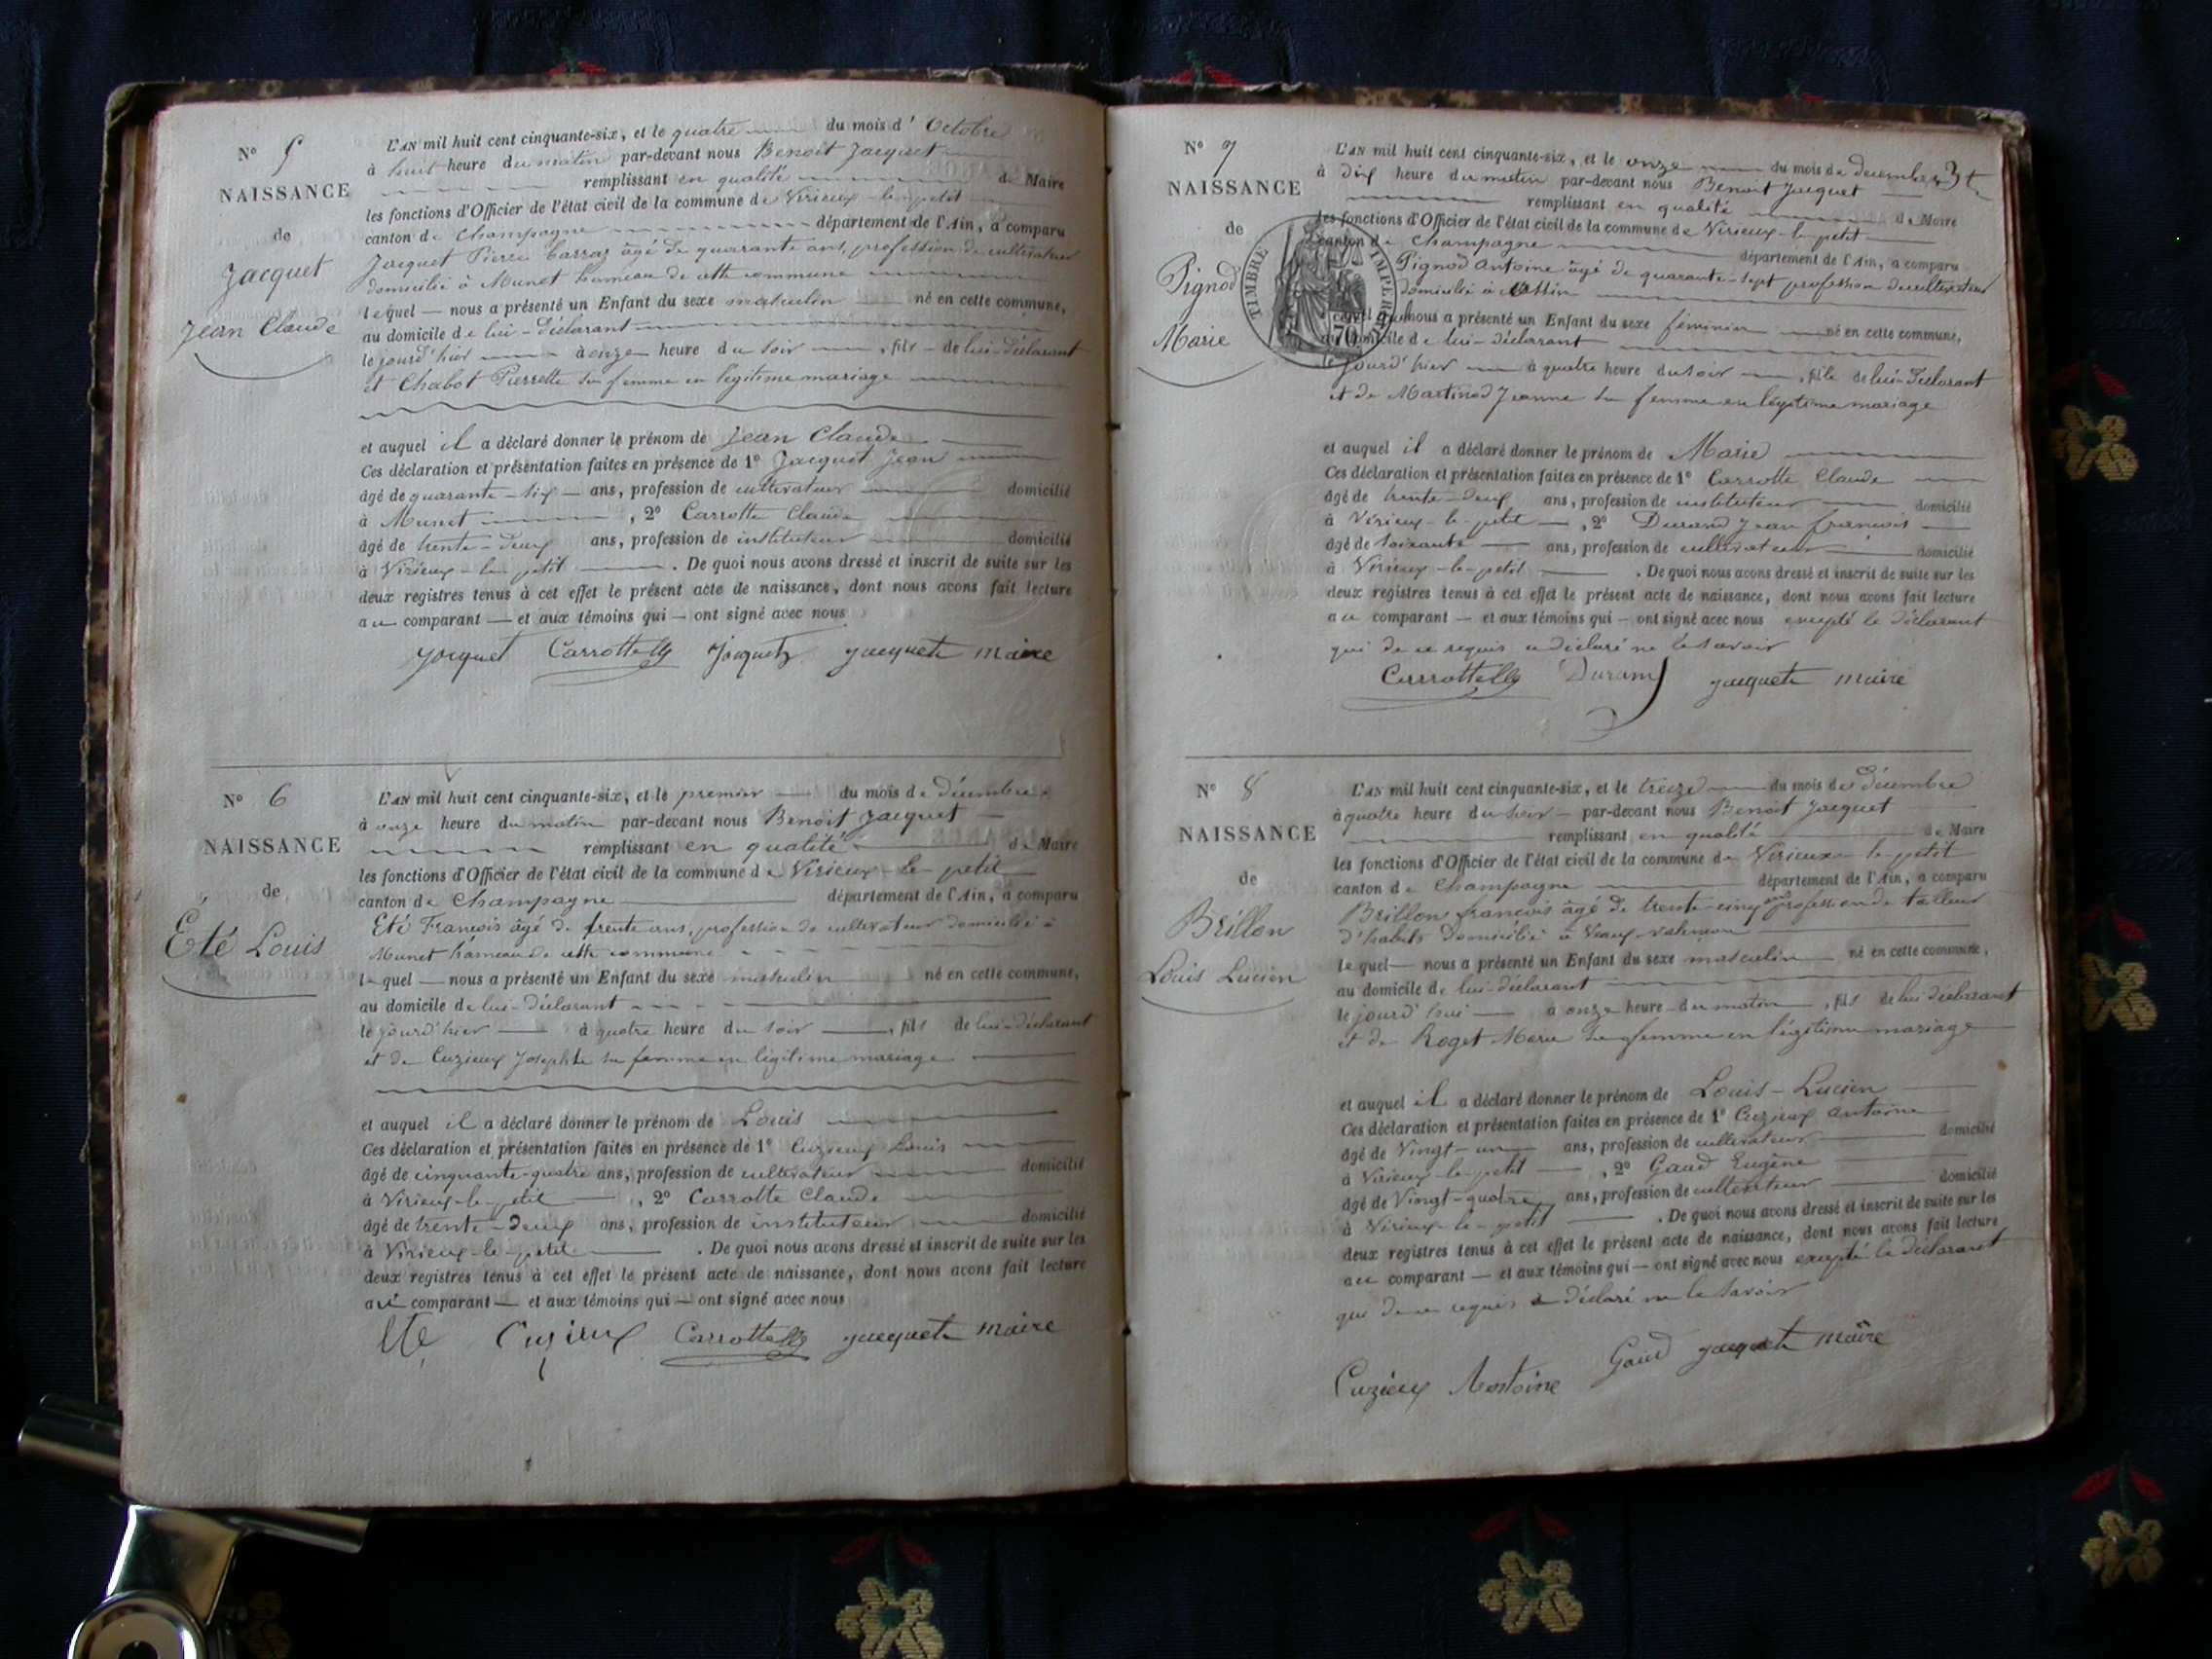 N° 5
NAISSANCE
de
Jacquet
Jean Claude
L'AN mil huit cent cinquante-six, et le quatre du mois d' Octobre
à huit heure du matin par-devant nous Benoit Jacquet
remplissant en qualité de Maire
les fonctions d'Officier de l'état civil de la commune de Virieux-le-petit
canton de Champagne département de l'Ain, a comparu
Jacquet Pierre Carraz âgé de quarante ans, profession de cultivateur
domicilié à Munet hameau de cette commune
lequel nous a présenté un Enfant du sexe masculin né en cette commune,
au domicile de lui-déclarant
le jourd'hier à onze heure du soir, fils de lui-déclarant
et Chabot Pierrette sa femme en légitime mariage
et auquel il a déclaré donner le prénom de Jean Claude
Ces déclaration et présentation faites en présence de 1° Jacquet Jean
âgé de quarante-six ans, profession de cultivateur domicilié
à Munet, 2° Carrotte Claude
âgé de trente-deux ans, profession de instituteur domicilié
à Virieux-le-petit. De quoi nous avons dressé et inscrit de suite sur les
deux registres tenus à cet effet le présent acte de naissance, dont nous avons fait lecture
au comparant et aux témoins qui ont signé avec nous
Jacquet Carrotte Jacquet Jacquet maire
N° 6
NAISSANCE
de
Été Louis
L'AN mil huit cent cinquante-six, et le premier du mois de décembre
à onze heure du matin par-devant nous Benoit Jacquet
remplissant en qualité de Maire
les fonctions d'Officier de l'état civil de la commune de Virieux-le-petit
canton de Champagne département de l'Ain, a comparu
Eté François âgé de trente ans, profession de cultivateur domicilié à
Munet hameau de cette commune
lequel nous a présenté un Enfant du sexe masculin né en cette commune,
au domicile de lui-déclarant
le jourd'hier à quatre heure du soir, fils de lui-déclarant
et de Cuzieux Josephte sa femme en légitime mariage
et auquel il a déclaré donner le prénom de Louis
Ces déclaration et présentation faites en présence de 1° Cuzieux Louis
âgé de cinquante-quatre ans, profession de cultivateur domicilié
à Virieux-le-petit, 2° Carrotte Claude
âgé de trente-deux ans, profession de instituteur domicilié
à Virieux-le-petit. De quoi nous avons dressé et inscrit de suite sur les
deux registres tenus à cet effet le présent acte de naissance, dont nous avons fait lecture
au comparant et aux témoins qui ont signé avec nous
Eté Cuzieux Carrotte Jacquet maire
N° 7
NAISSANCE
de
Pignod
Marie
TIMBRE IMPERIAL
70
L'AN mil huit cent cinquante-six, et le onze du mois de décembre
à dix heure du matin par-devant nous Benoit Jacquet
remplissant en qualité de Maire
les fonctions d'Officier de l'état civil de la commune de Virieux-le-petit
canton de Champagne département de l'Ain, a comparu
Pignod Antoine âgé de quarante-sept profession de cultivateur
domicilié à Assin
lequel nous a présenté un Enfant du sexe féminin né en cette commune,
au domicile de lui-déclarant
le jourd'hier à quatre heure du soir, fille de lui-déclarant
et de Martinod Jeanne sa femme en légitime mariage
et auquel il a déclaré donner le prénom de Marie
Ces déclaration et présentation faites en présence de 1° Carrotte Claude
âgé de trente-deux ans, profession de instituteur domicilié
à Virieux-le-petit, 2° Durand Jean françois
âgé de soixante ans, profession de cultivateur domicilié
à Virieux-le-petit. De quoi nous avons dressé et inscrit de suite sur les
deux registres tenus à cet effet le présent acte de naissance, dont nous avons fait lecture
au comparant et aux témoins qui ont signé avec nous excepté le déclarant
qui de ce requis a déclaré ne le savoir
Carrotte Durand Jacquet maire
N° 8
NAISSANCE
de
Brillon
Louis Lucien
L'AN mil huit cent cinquante-six, et le treize du mois de décembre
à quatre heure du soir par-devant nous Benoit Jacquet
remplissant en qualité de Maire
les fonctions d'Officier de l'état civil de la commune de Virieux-le-petit
canton de Champagne département de l'Ain, a comparu
Brillon françois âgé de trente-cinq ans profession de tailleur
d'habits domicilié à
lequel nous a présenté un Enfant du sexe masculin né en cette commune,
au domicile de lui-déclarant
le jourd'hui à onze heure du matin, fils de lui déclarant
et de Roget Marie sa femme en légitime mariage
et auquel il a déclaré donner le prénom de Louis-Lucien
Ces déclaration et présentation faites en présence de 1° Cuzieux antoine
âgé de Vingt-un ans, profession de cultivateur domicilié
à Virieux-le-petit, 2° Gaud Eugène
âgé de Vingt-quatre ans, profession de cultivateur domicilié
à Virieux-le-petit. De quoi nous avons dressé et inscrit de suite sur les
deux registres tenus à cet effet le présent acte de naissance, dont nous avons fait lecture
au comparant et aux témoins qui ont signé avec nous excepté le déclarant
qui de ce requis a déclaré ne le savoir
Cuzieux Antoine Gaud Jacquet maire